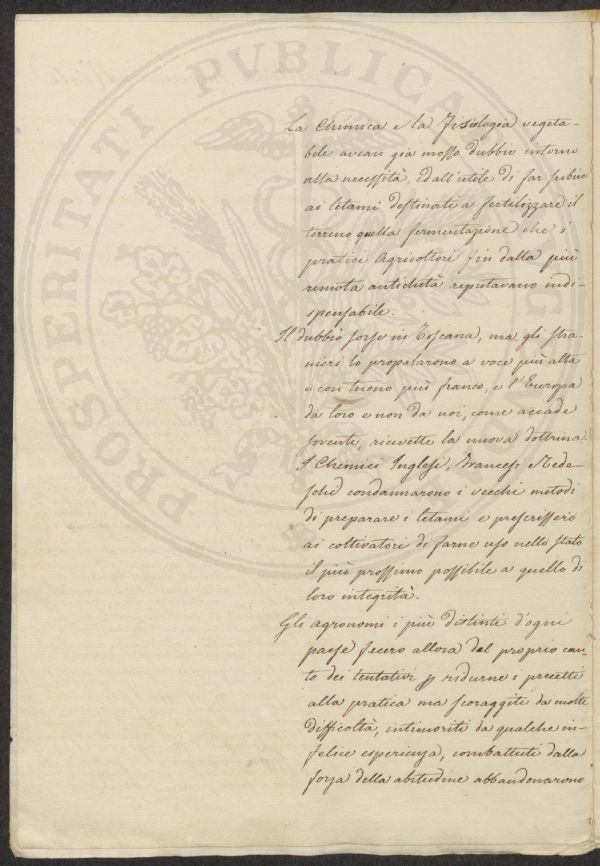 La Chimica e la Fisiologia vegeta-
bile avean già mosso dubbio intorno
alla necessità, ed all'utile di far subire
ai letami destinati a fertilizzare il
terreno quella fermentazione che i
pratici Agricoltori fin dalla più
remota antichità reputavano indi-
spensabile.
Il dubbio sorse in Toscana, ma gli stra-
nieri lo propalarono a voce più alta
e con tuono più franco, e l'Europa
da loro e non da noi, come accade
sovente, ricevette la nuova dottrina.
I Chimici Inglesi, Francesi e Tede-
schi condannarono i vecchi metodi
di preparare i letami e prescrissero
ai coltivatori di farne uso nello stato
il più prossimo possibile a quello di
loro integrità.
Gli agronomi i più distinti d'ogni
paese fecero allora dal proprio can-
to dei tentativi p ridurne i precetti
alla pratica ma scoraggiti da molte
difficoltà, intimoriti da qualche in-
felice esperienza, combattuti dalla
forza della abitudine abbandonarono
PROSPERITATI PVBLICAE